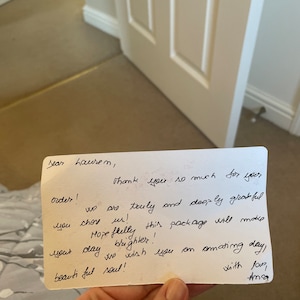 Dear Lauren,
Thank you so much for your
order! we are truly and deeply grateful
you chose us!
Hopefully this package will make
your day brighter!!
we wish you an amazing day,
beautiful soul!
with love,